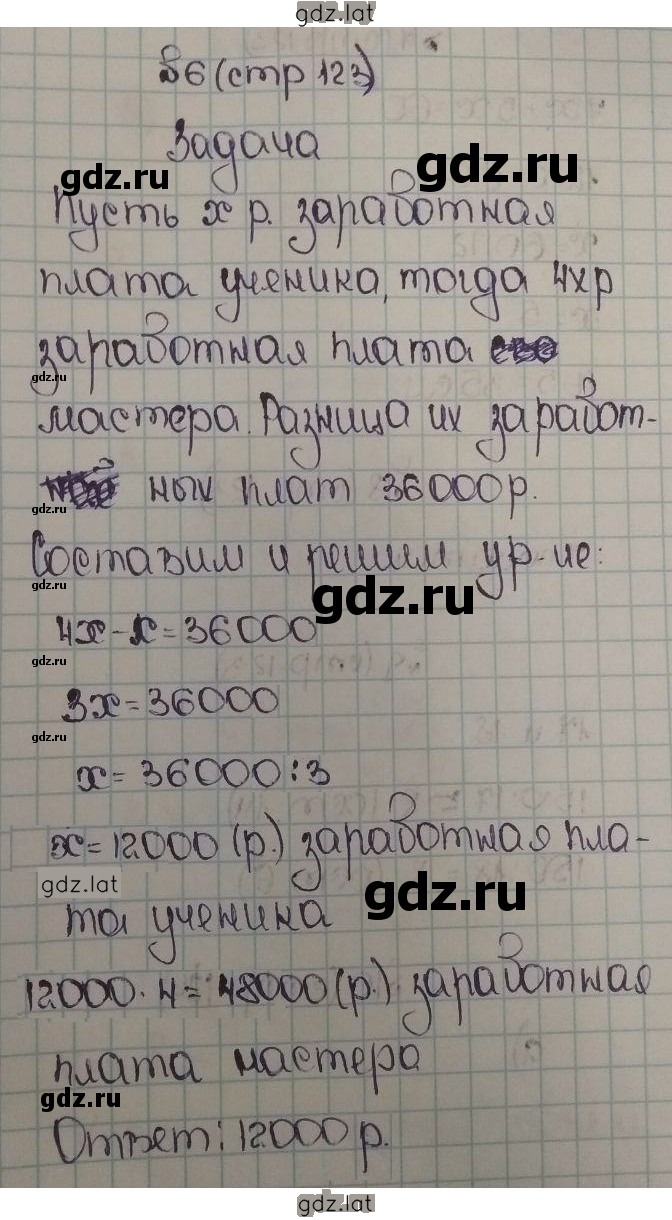 gdz.lat
№6 (стр 123)
Задача
gdz.ru
gdz.ru
Пусть x р. заработная
плата ученика, тогда 4x р
заработная плата
gdz.ru
мастера. Разница их заработ-
ных плат 36000 р.
gdz.ru
Составим и решим ур-ие:
gdz.ru
gdz.ru
4x-x=36000
gdz.ru
3x=36000
gdz.ru
x=36000:3
x=12000 (р.) заработная пла-
gdz.lat
gdz.ru
та ученика
12000·4=48000(р.) заработная
плата мастера
gdz.ru
Ответ: 12000 р.
gdz.lat